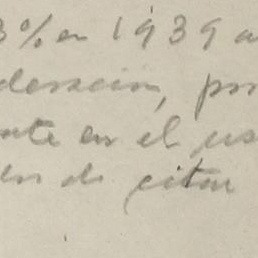 3% en 1939 a
deración, por
nte en el us
des de citar